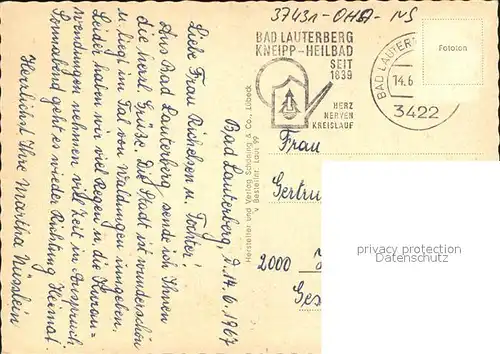 37431-OHA-NS
BAD LAUTERBERG
KNEIPP-HEILBAD
SEIT
1839
HERZ
NERVEN
KREISLAUF
BAD LAUTER
14.6
3422
Fototon
Bad Lauterberg, d. 14.6.1967
Liebe Frau Richelsen u. Tochter!
Aus Bad Lauterberg sende ich Ihnen
die herzl. Grüße. Die Stadt ist wunderschön
u. liegt im Tal von Waldungen umgeben.
Leider haben wir viel Regen u. die Kuran=
wendungen nehmen viel Zeit in Anspruch.
Sonnabend geht es wieder Richtung Heimat.
Herzlichst Ihre Martha Nüsslein
Hersteller und Verlag Schöning & Co., Lübeck
Bestellnr. Laut 99
Frau
Gertru
2000
privacy protection
www.ansichtskartenversand.com